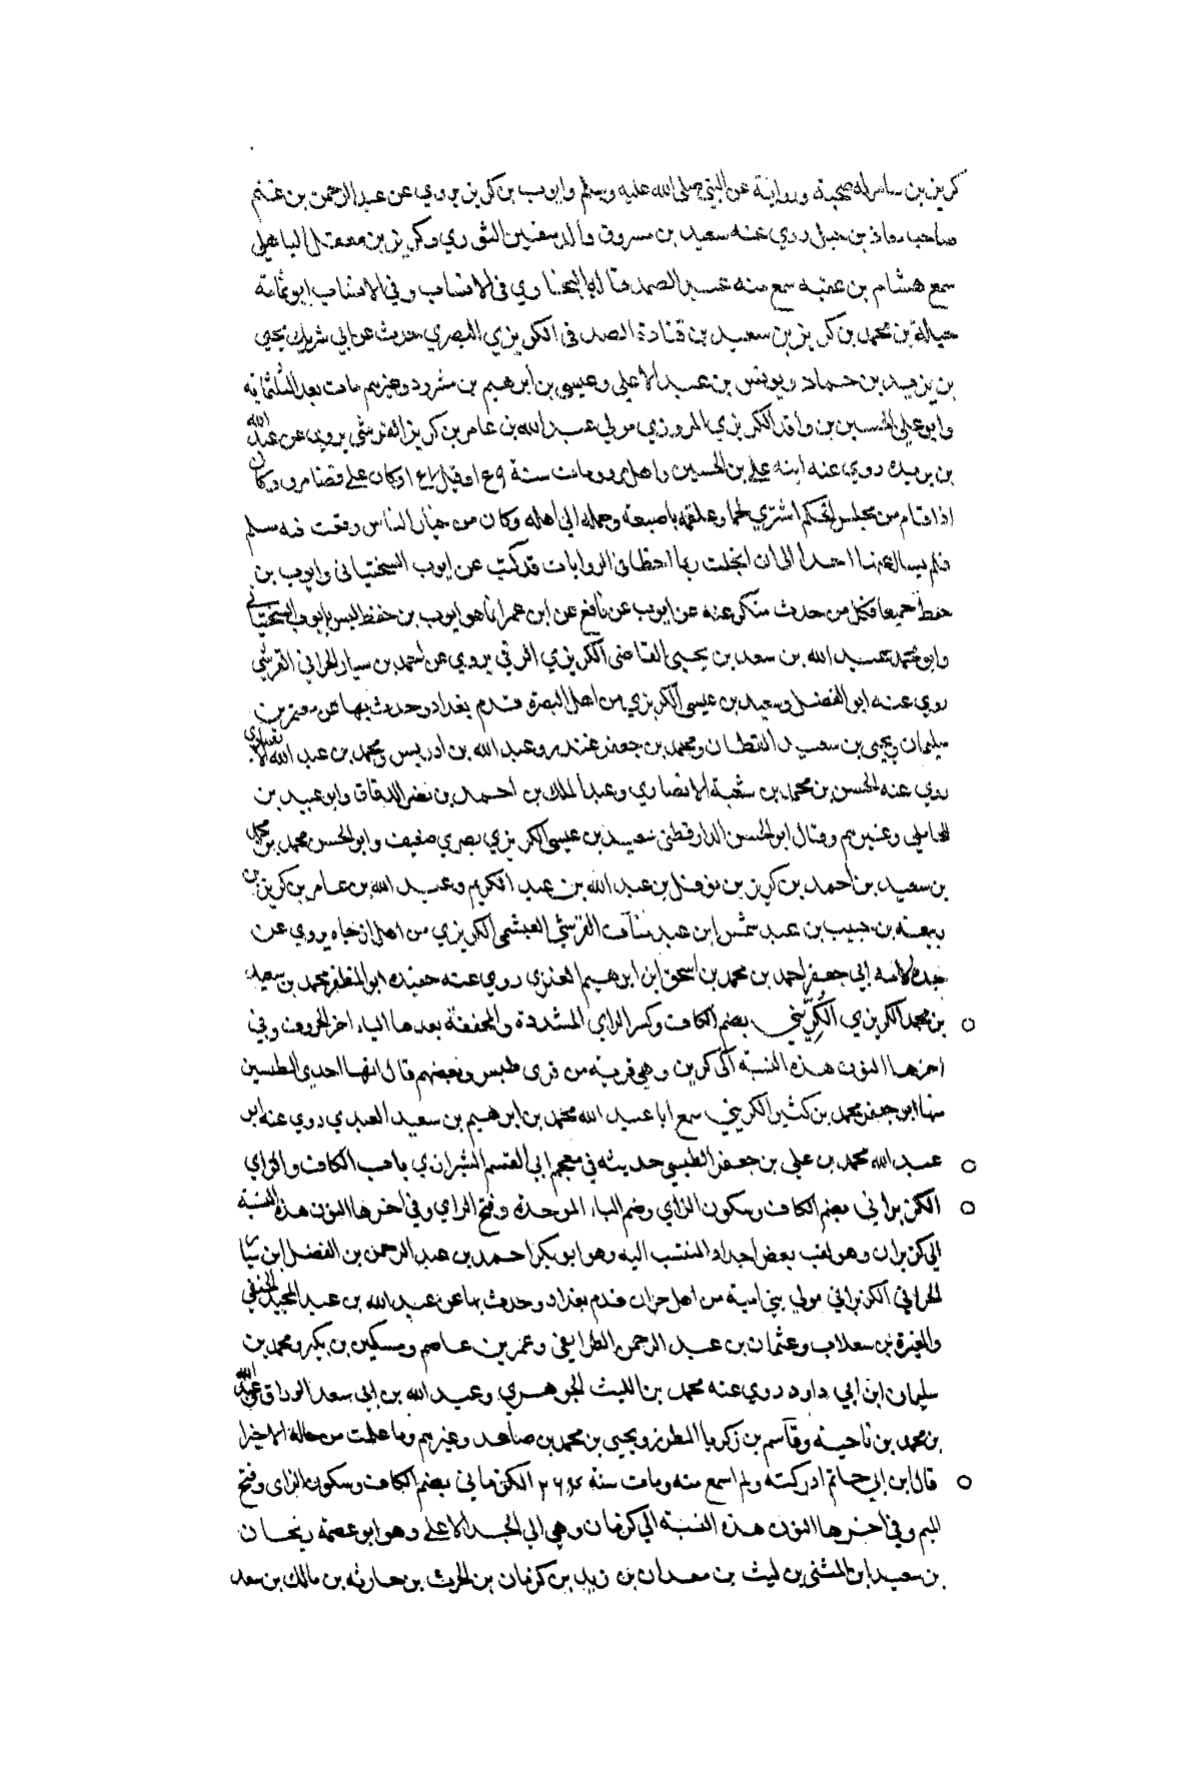 كريز بن سامر له صحبة ورواية عن النبي صلى الله عليه وسلم وايوب بن كريز يروي عن عبد الرحمن بن غنم
صاحب معاذ بن جبل روي عنه سعيد بن مسروق والد سفين الثوري وكريز بن معقل الباهلي
سمع هشام بن عقبه سمع منه عبد الصمد قاله البخاري في الانساب وفي الانساب ابو ثمامة
جبلة بن محمد بن كريز بن سعيد بن قتادة الصدفي الكريزي البصري حدث عن ابي شريك يحيى
بن يزيد بن حماد ويونس بن عبد الاعلى وعيسى بن ابرهيم بن مثرود وغيرهم مات بعد الثلثمائه
وابو علي الحسين بن واقد الكريزي المروزي مولي عبد الله بن عامر بن كريز القرشي يروي عن عبد الله
بن بريده روي عنه ابنه علي بن الحسين واهل مرو ومات سنة وكان على قضا مرو وكان
اذا قام من مجلس الحكم اشتري لحما وعلقه باصبعه وحمله الى اهله وكان من خيار الناس وقعت فيه مسلم
فلم يسال عنها احدا الى ان انجلت ربما اخطا في الروايات قد كتب عن ايوب السختياني وايوب بن
جميعا فكل من حدث منكر عنه عن ايوب عن نافع عن ابن عمر انما هو ايوب بن ليس بايوب السختياني
وابو محمد عبيد الله بن سعد بن يحيى القاضي الكريزي الرقي يروي عن احمد بن سيار الحراني القرشي
روي عنه ابو الفضل وسعيد بن عيسى الكريزي من اهل البصرة قدم بغداد وحدث بها عن معتمر بن
سليمان ويحيى بن سعيد القطان ومحمد بن جعفر غندر وعبد الله بن ادريس ومحمد بن عبد الله الانصاري
روي عنه الحسن بن محمد بن شعبة الانصاري وعبد الملك بن احمد بن نصر الدقاق وابو عبيد بن
المحاملي وغيرهم وقال ابو الحسن الدارقطني سعيد بن عيسى الكريزي بصري ضعيف وابو الحسن محمد بن محمد
بن سعيد بن احمد بن كريز بن نوفل بن عبد الله بن عبد الكريم وعبيد الله بن عامر بن كريز بن
ربيعة بن حبيب بن عبد شمس ابن عبد مناف القرشي العبشمي الكريزي من اهل ازجاه يروي عن
جده لامه ابي جعفر احمد بن محمد بن اسحق ابن ابرهيم العنزي روي عنه حفيده ابو المظفر محمد بن سعيد
بن محمد الكريزي الكُرِّيني بضم الكاف وكسر الراي المشددة والمخففة بعدها الياء اخر الحروف وفي
اخرها النون هذه النسبة الى كرين وهي قرية من قرى طبس وبعضهم قال انها احدى الطبسين
منها ابو جعفر محمد بن كثير الكريني سمع ابا عبد الله محمد بن ابرهيم بن سعيد العبدي روي عنه ابو
عبد الله محمد بن علي بن جعفر الطبسي حديثه في معجم ابي القسم الشيرازي باب الكاف والزاي
الكزبراني بضم الكاف وسكون الزاي وضم الباء الموحدة وفتح الراي وفي اخرها النون هذه النسبة
الى كزبران وهو لقب بعض اجداد المنتسب اليه وهو ابو بكر احمد بن عبد الرحمن بن الفضل ابن سيا
الحراني الكزبراني مولي بني امية من اهل حران قدم بغداد وحدث بها عن عبيد الله بن عبد المجيد الحنفي
والمغيرة بن سقلاب وعثمان بن عبد الرحمن الطرايفي وعمر بن عاصم ومسكين بن بكير ومحمد بن
سليمان ابن ابي داود روي عنه محمد بن الليث الجوهري وعبد الله بن ابي سعد الوراق وعبد الله
بن محمد بن ناحية وقاسم بن زكريا المطرز ويحيى بن محمد بن صاعد وغيرهم وما علمت من حاله الا خيرا
قال ابن ابي حاتم ادركته ولم اسمع منه ومات سنة ٢٦٤ الكزماني بضم الكاف وسكون الزاى وفتح
الميم وفي اخرها النون هذه النسبة الى كزمان وهي الى الجد الاعلى وهو ابو عصمة ريحان
بن سعيد ابن المثنى بن ليث بن معدان بن زيد بن كزمان بن الحرث بن حارثه بن مالك بن سعد